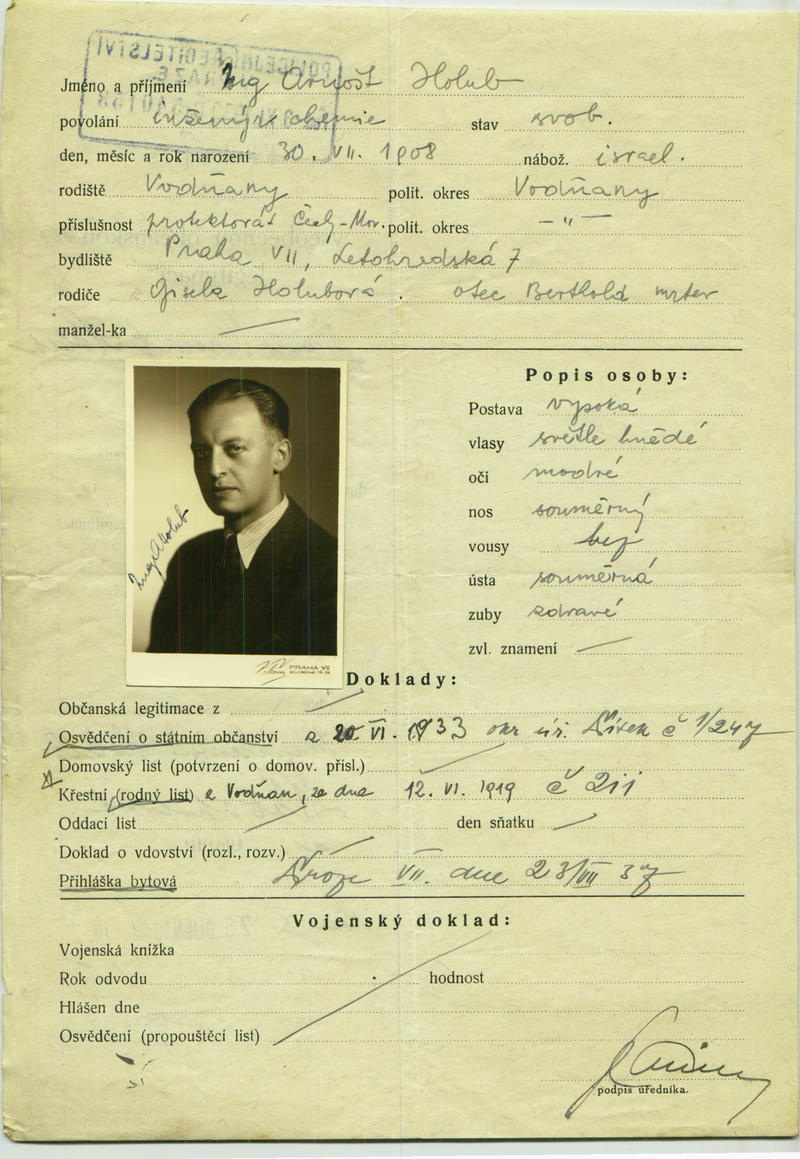 POLICEJNÍ ŘEDITELSTVÍ
Jméno a příjmení Ing Arnošt Holub
povolání inženýr chemie stav svob.
den, měsíc a rok narození 30. VII. 1908 nábož. israel.
rodiště Vodňany polit. okres Vodňany
příslušnost protektorát Čechy-Mor. polit. okres — " —
bydliště Praha VII, Letohradská 7
rodiče Gisela Holubová. otec Berthold mrtev
manžel-ka
Popis osoby:
Postava vysoká
vlasy světle hnědé
oči modré
nos souměrný
vousy
ústa souměrná
zuby zdravé
zvl. znamení
Ing A Holub
PRAHA VII
Doklady:
Občanská legitimace z
Osvědčení o státním občanství z 20. VI. 1933 okr úř. Písek č 1/247
Domovský list (potvrzení o domov. přísl.)
Křestní (rodný list) z Vodňan, ze dne 12. VI. 1919 č 211
Oddací list den sňatku
Doklad o vdovství (rozl., rozv.)
Přihláška bytová VII. dne 23/VII 37
Vojenský doklad:
Vojenská knížka
Rok odvodu hodnost
Hlášen dne
Osvědčení (propouštěcí list)
podpis úředníka.